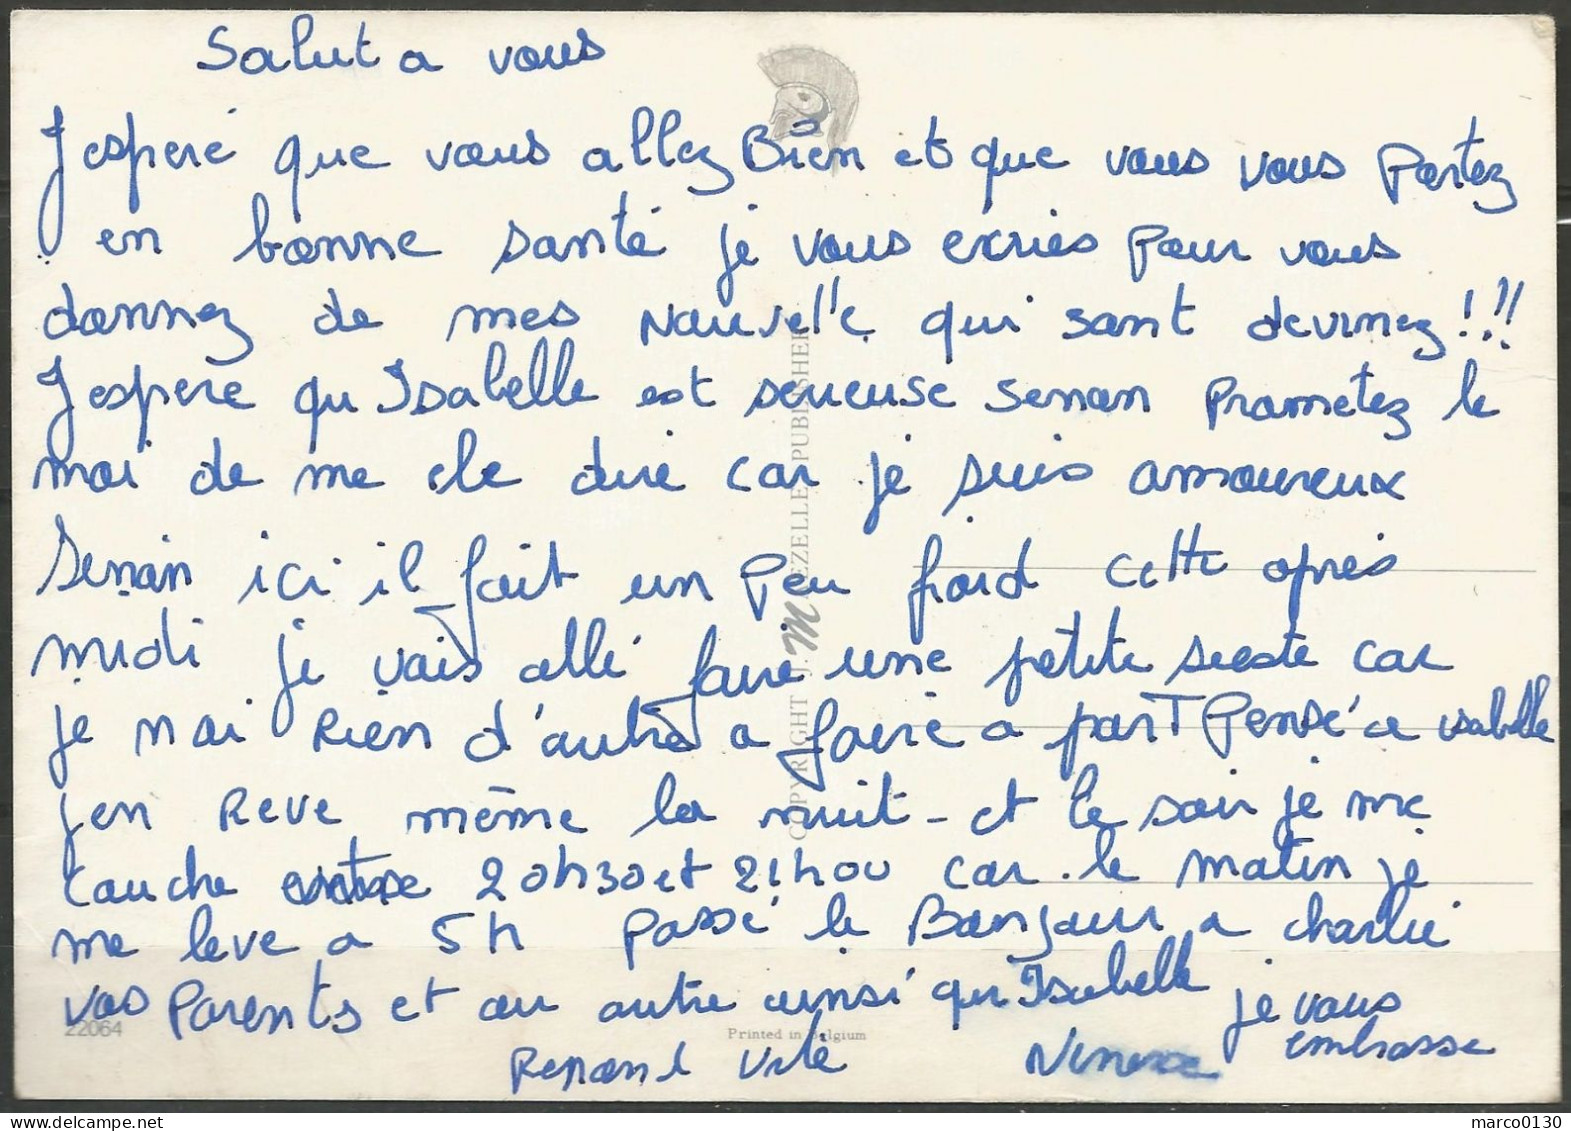 Salut a vous
J espere que vous allez Bien et que vous vous Portez
en bonne santé je vous ecries Pour vous
donnez de mes Nouvelle qui sont devinez !!!
J espere qu Isabelle est serieuse senon Prometez le
moi de me le dire car je suis amoureux
senon ici il fait un Peu froid cette apres
midi je vais allé faire une petite sieste car
je n ai Rien d'autres a faire a part Pensé a isabelle
j en Reve même la nuit - et le soir je me
couche entre 20h30 et 21h00 car le matin je
me leve a 5h Passé le Bonjour a charlie
vos Parents et au autre ainsi qu Isabelle je vous
embrasse
Reponse Vite
COPYRIGHT J. MEZELLE PUBLISHER
22064
Printed in Belgium
marco0130